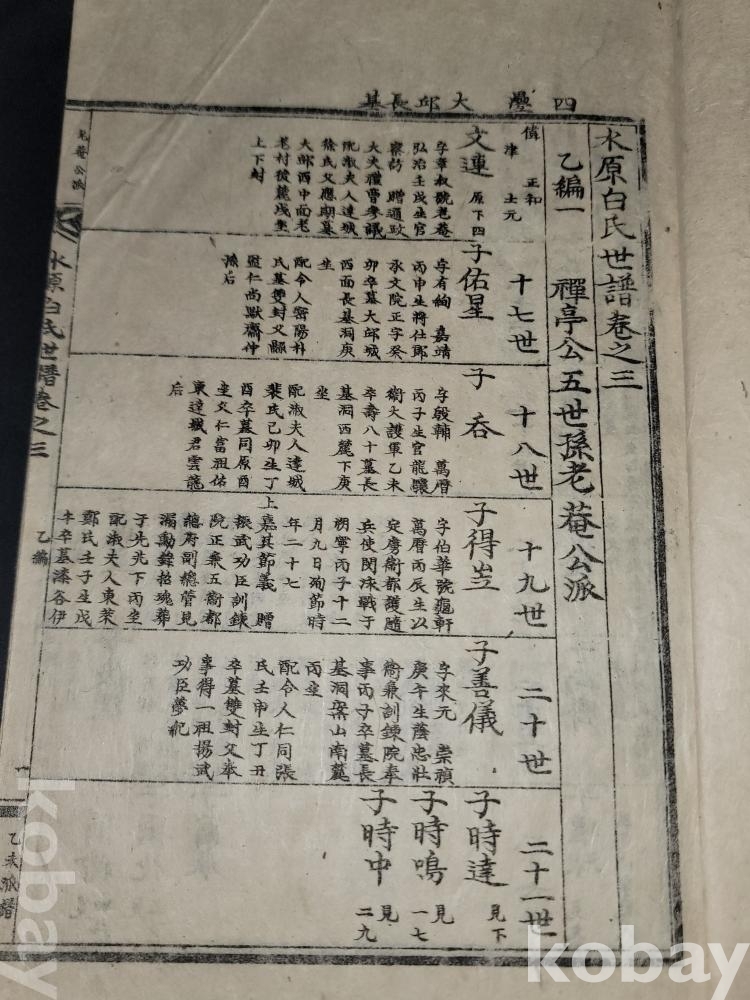 四 㵢 大邱長基
水原白氏世譜卷之三
乙編一 禪亭公五世孫老菴公派
津 正和
士元
文連 原下四
字章叔號老菴
弘治壬戌生官
察訪 贈通政
大夫禮曹參議
配淑夫人達城
徐氏父應期墓
大邱西中面老
老村後麓戌坐
上下封
十七世
子佑星
字有絢 嘉靖
丙申生將仕郞
承文院正字癸
卯卒墓大邱城
西面長基洞庚
坐
配令人密陽朴
氏墓雙封父縣
監仁尚默齋仲
孫后
十八世
子呑
字殷輔 萬曆
丙子生官龍驤
衛大護軍乙未
卒壽八十墓長
基洞西麓下庚
坐
配淑夫人達城
裴氏己卯生丁
酉卒墓同原酉
坐父仁富祖佑
東達城君雲龍
后
十九世
子得岦
字伯華號寵軒
萬曆丙辰生以
定虜衛都護隨
兵使閔泳戰于
朔寧丙子十二
月九日殉節時
年二十七
上嘉其節義 贈
振武功臣訓鍊
院正兼五衛都
摠府副總管見
漏勳錄招魂葬
于先兆下丙坐
配淑夫人東萊
鄭氏壬子生戊
午卒墓漆谷伊
二十世
子善儀
字來元 崇禎
庚午生蔭忠壯
衛兼訓鍊院奉
事丙子卒墓長
基洞案山南麓
丙坐
配令人仁同張
氏壬申生丁丑
卒墓雙封父奉
事得一祖揚武
功臣夢紀
二十一世
子時達 見下
子時鳴 見一七
子時中 見二九
老菴公派
水原白氏世譜卷之三
乙編
乙未派譜
kobay
kobay